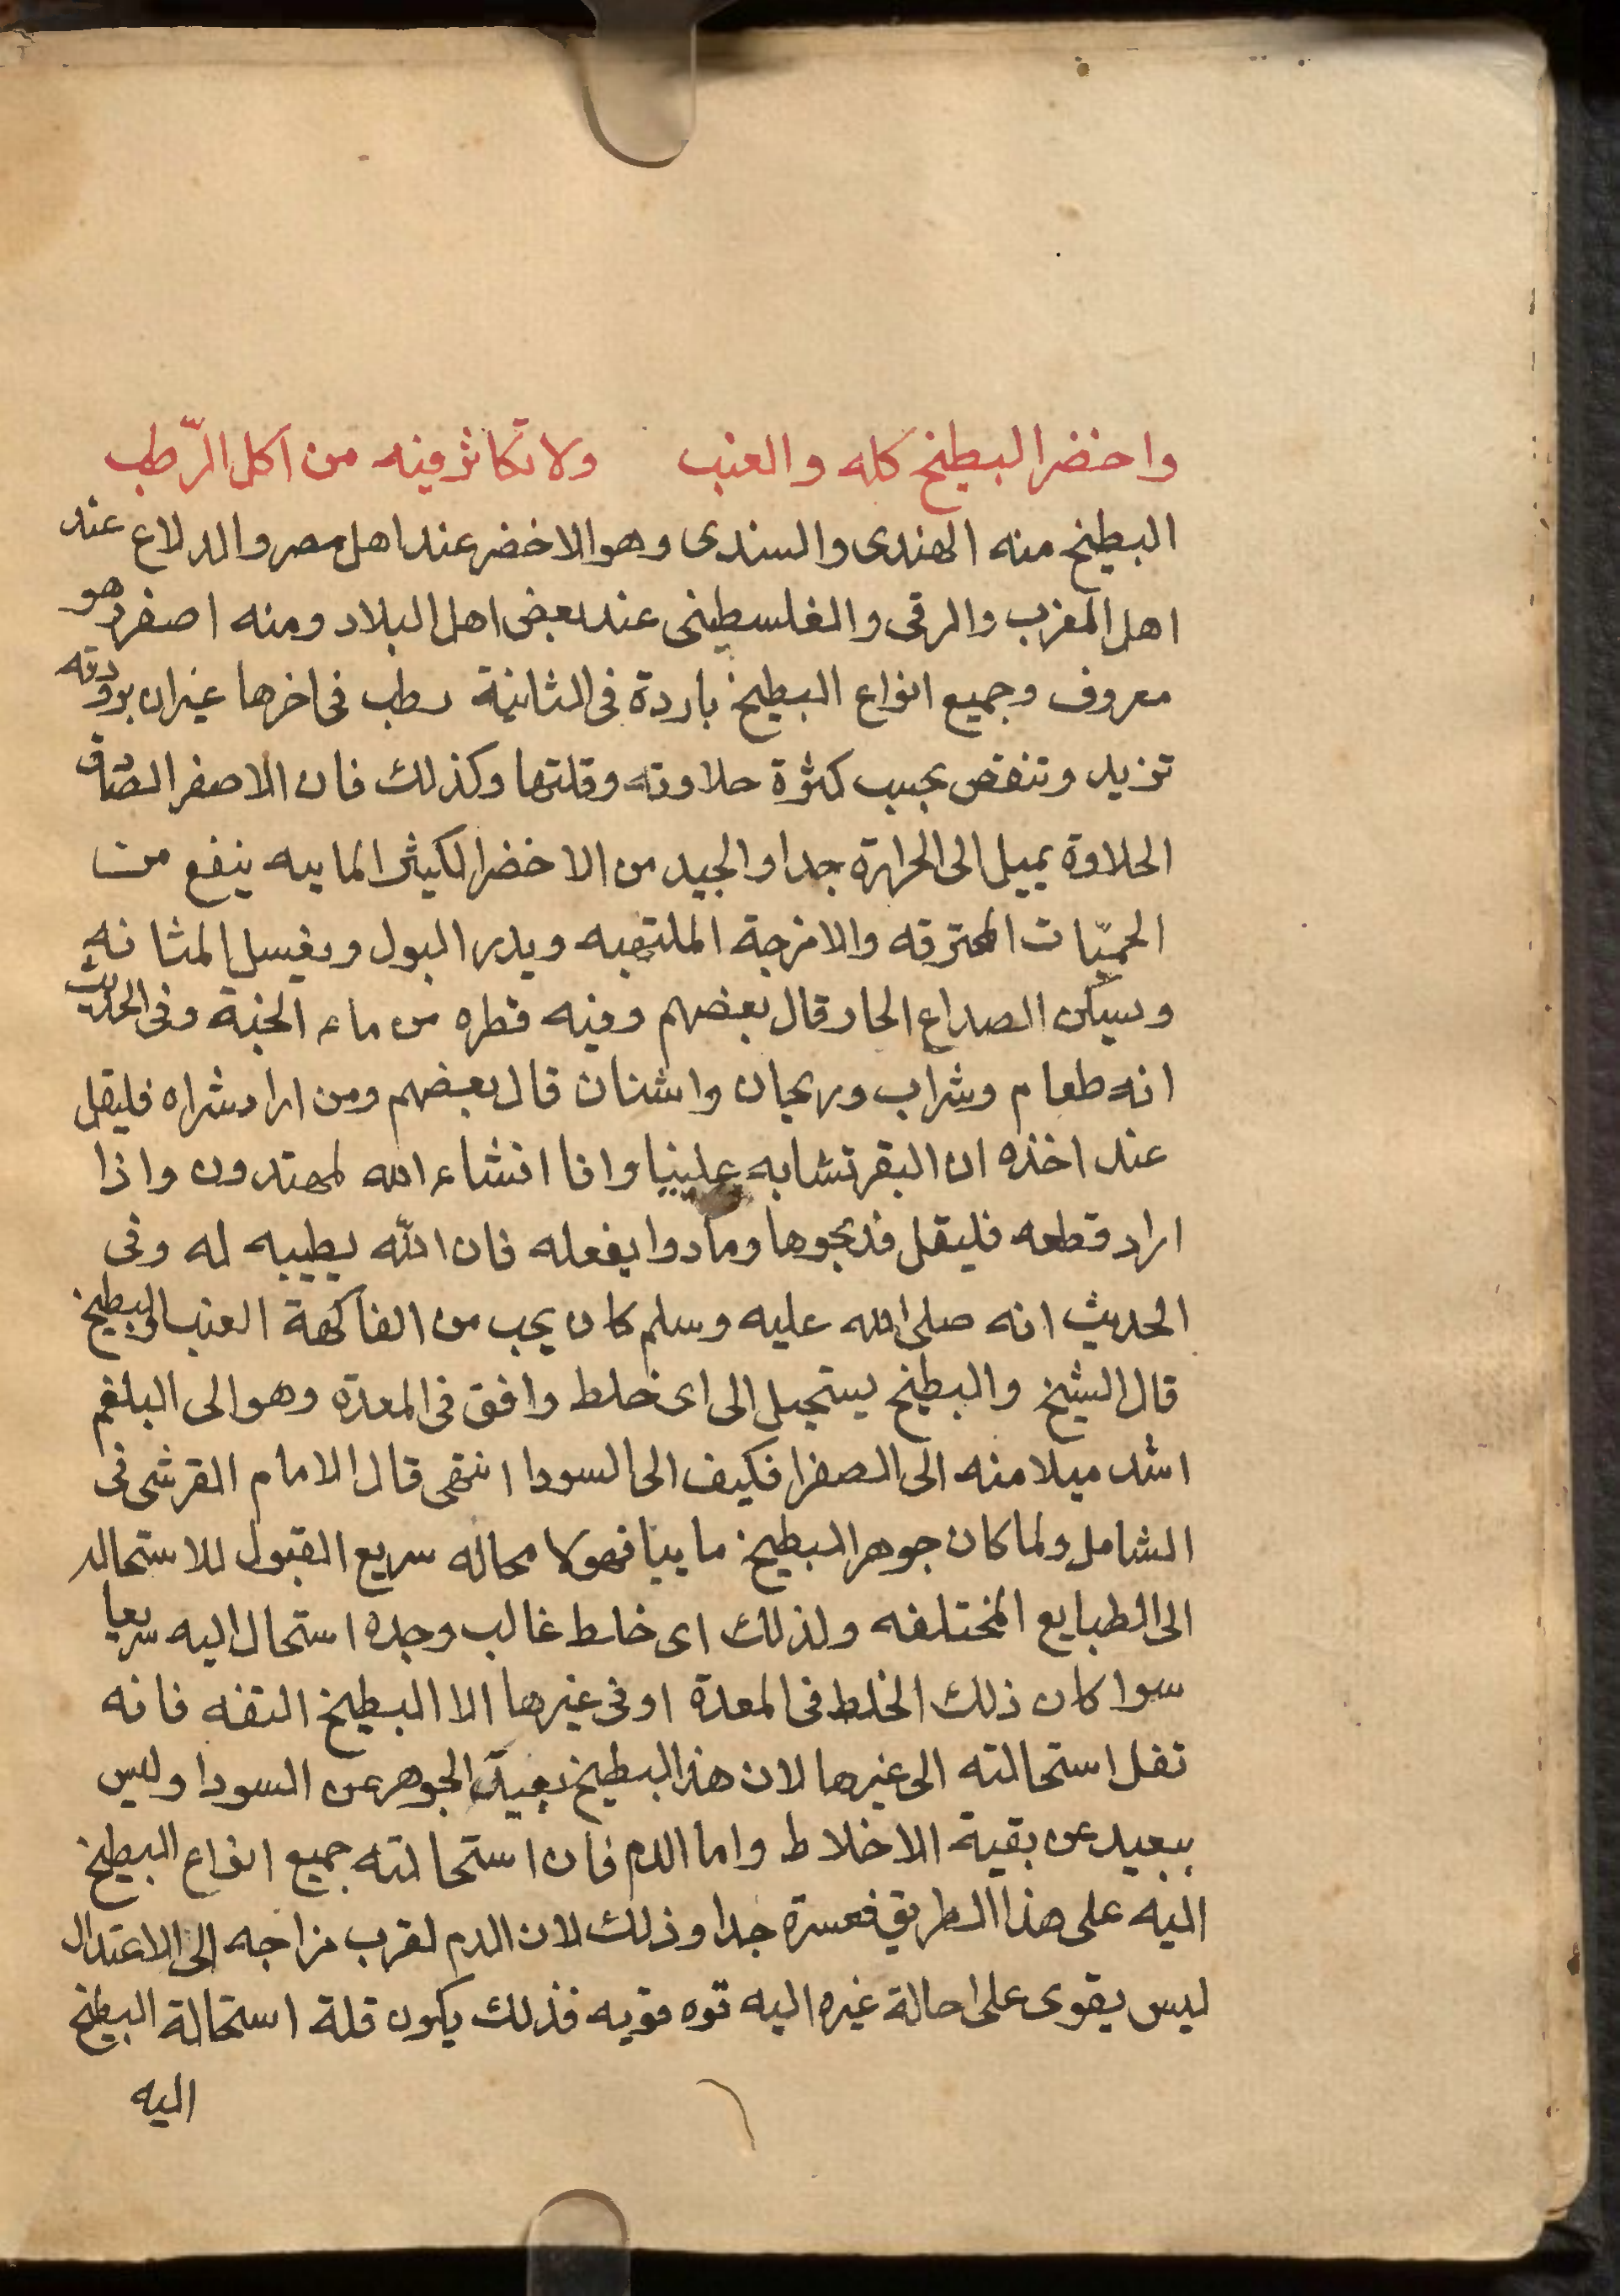 واحضر البطيخ كله والعنب ولا تكاثر فيه من اكل الرّطب
البطيخ منه الهندى والسندى وهو الاخضر عند اهل مصر والدلاع عند
اهل المغرب والرقى والفلسطينى عند بعض اهل البلاد ومنه اصفر وهو
معروف وجميع انواع البطيخ باردة فى الثانية رطب فى اخرها غيران برودته
تزيد وتنقص بحسب كثرة حلاوته وقلتها وكذلك فان الاصفر الصادق
الحلاوة يميل الى الحرارة جدا والجيد من الاخضر الكثير المايية ينفع من
الحميّات المحترقه والامزجة الملتهبه ويدر البول ويغسل المثانه
ويسكن الصداع الحار وقال بعضهم وفيه قطره من ماء الجنة وفى الحديث
انه طعام وشراب وريحان واشنان قال بعضهم ومن اراد شراه فليقل
عند اخذه ان البقر تشابه علينا وانا انشاء الله لمهتدون واذا
اراد قطعه فليقل فذبحوها وما دوا يفعله فان الله يطيبه له وفى
الحديث انه صلى الله عليه وسلم كان يحب من الفاكهة العنب والبطيخ
قال الشيخ والبطيخ يستحيل الى اى خلط وافق فى المعدة وهو الى البلغم
اشد ميلا منه الى الصفرا فكيف الى السودا انتهى قال الامام القرشى فى
الشامل ولما كان جوهر البطيخ ماييا فهو لا محاله سريع القبول للاستحاله
الى الطبايع المختلفه ولذلك اى خلط غالب وجده استحال اليه سريعا
سوا كان ذلك الخلط فى المعدة او فى غيرها الا البطيخ التفه فانه
تقل استحالته الى غيرها لان هذا البطيخ بعيد الجوهر عن السودا وليس
ببعيد عن بقية الاخلاط واما الدم فان استحالته جميع انواع البطيخ
اليه على هذا الطريق فعسرة جدا وذلك لان الدم لقرب مزاجه الى الاعتدال
ليس يقوى على احالة غيره اليه قوه قويه فذلك يكون قلة استحالة البطيخ
اليه